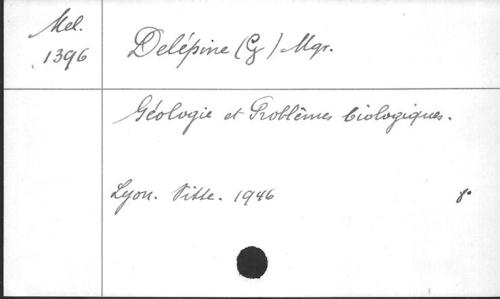 Mel.
1396
Delépine (G) Mgr.
Géologie et Problèmes biologiques.
Lyon. Vitte. 1946 8°